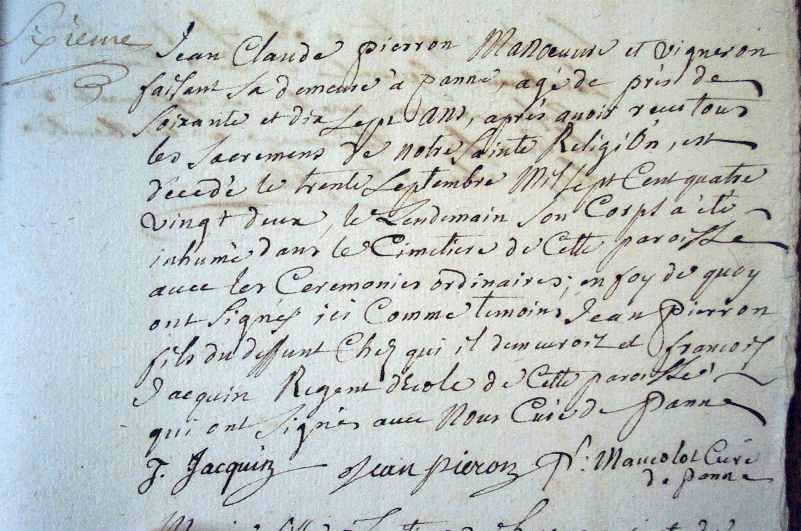 Sixieme
Jean Claude pierron Manoeuvre et vigneron
faisant sa demeure à panne, agé de près de
soixante et dix sept ans, après avoir recu tous
les sacremens de notre Sainte Religión, est
décédé le trente septembre mil sept cent quatre
vingt deux, le lendemain son Corps a été
inhumé dans le Cimetiere de Cette paroisse
avec les Ceremonies ordinaires; en foy de quoy
ont Signés ici Comme temoins Jean pierron
fils du deffunt chez qui il demeuroit et francois
Jacquin Regent d'école de Cette paroisse
qui ont Signés avec Nous Curé de panne
J. Jacquin Jean pieron Maucolot Curé
de panne